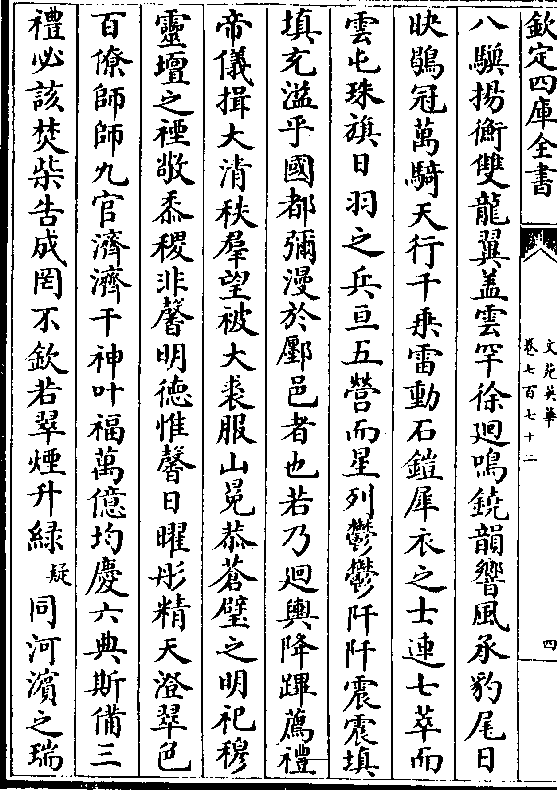 欽定四庫全書
文苑英華
卷七百七十二
四
八騻揚衡雙龍翼蓋雲罕徐廻鳴鐃韻響風承豹尾日
映鶡冠萬騎天行千乗雷動石鎧犀衣之士連七萃而
雲屯珠旗日羽之兵亘五營而星列鬱鬱阡阡震震填
填充溢乎國都彌漫於鄽邑者也若乃迴輿降蹕薦禮
帝儀揖大清秩羣望被大裘服山冕恭蒼璧之明祀穆
靈壇之禋敬黍稷非馨明德惟馨日曜彤精天澄翠色
百僚師師九官濟濟千神叶福萬億均慶六典斯備三
禮必該焚柴告成罔不欽若翠煙升緑疑同河濵之瑞